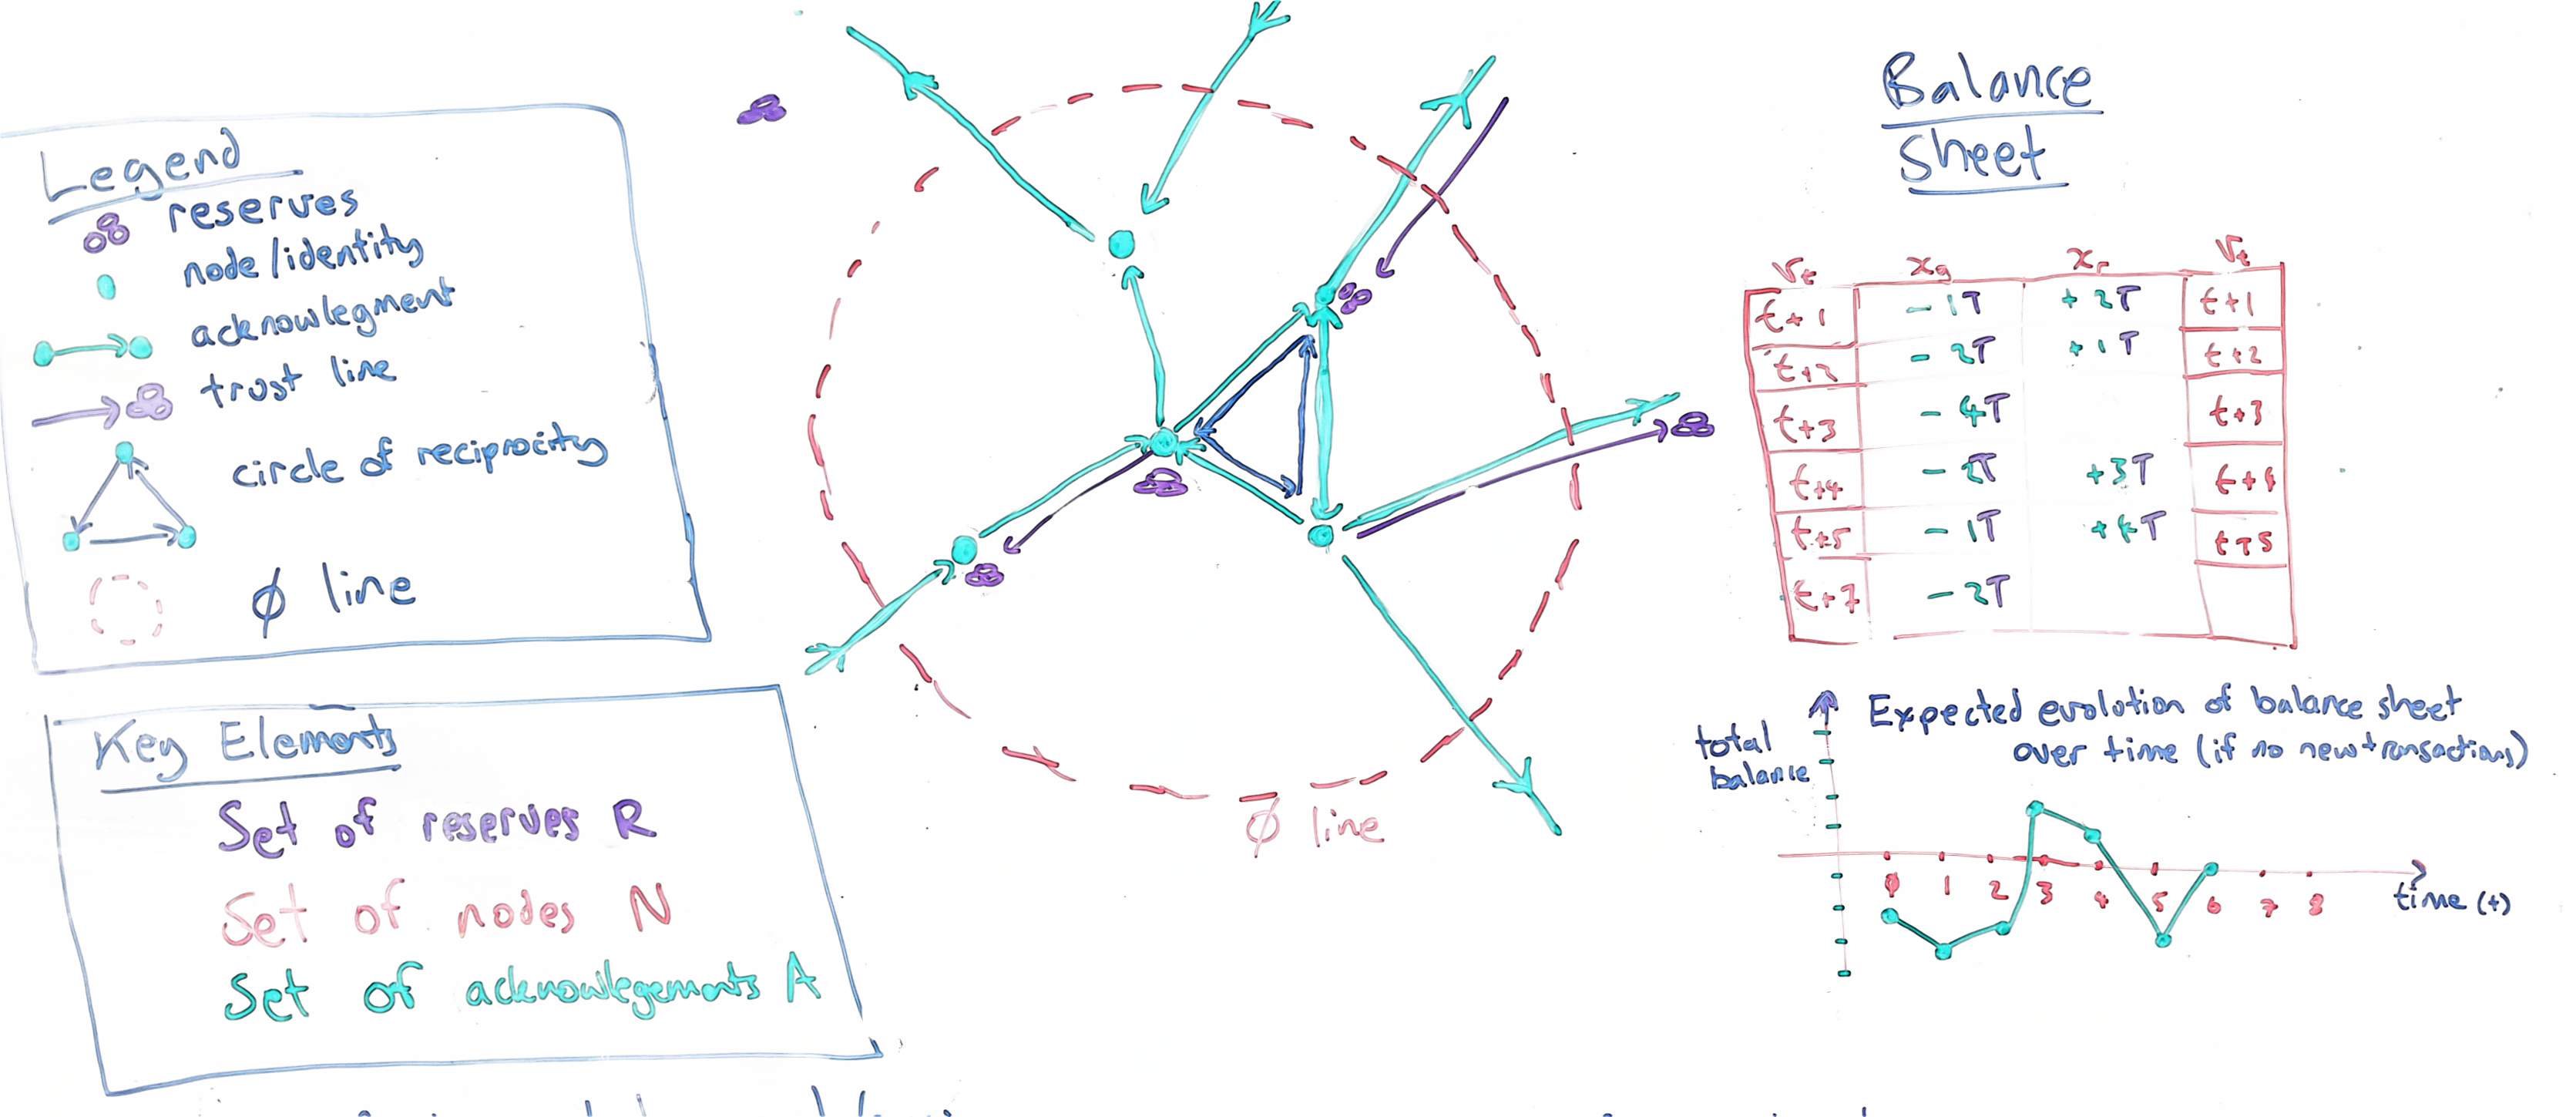 Legend
reserves
node/identity
acknowlegment
trust line
circle of reciprocity
ϕ line
Key Elements
Set of reserves R
Set of nodes N
Set of acknowlegements A
ϕ line
Balance
Sheet
√t xg xr √t
t+1 -1T +2T t+1
t+2 -2T +1T t+2
t+3 -4T t+3
t+4 -2T +3T t+4
t+5 -1T +4T t+5
t+7 -2T
Expected evolution of balance sheet
over time (if no new transactions)
total
balance
0 1 2 3 4 5 6 7 8
time (t)